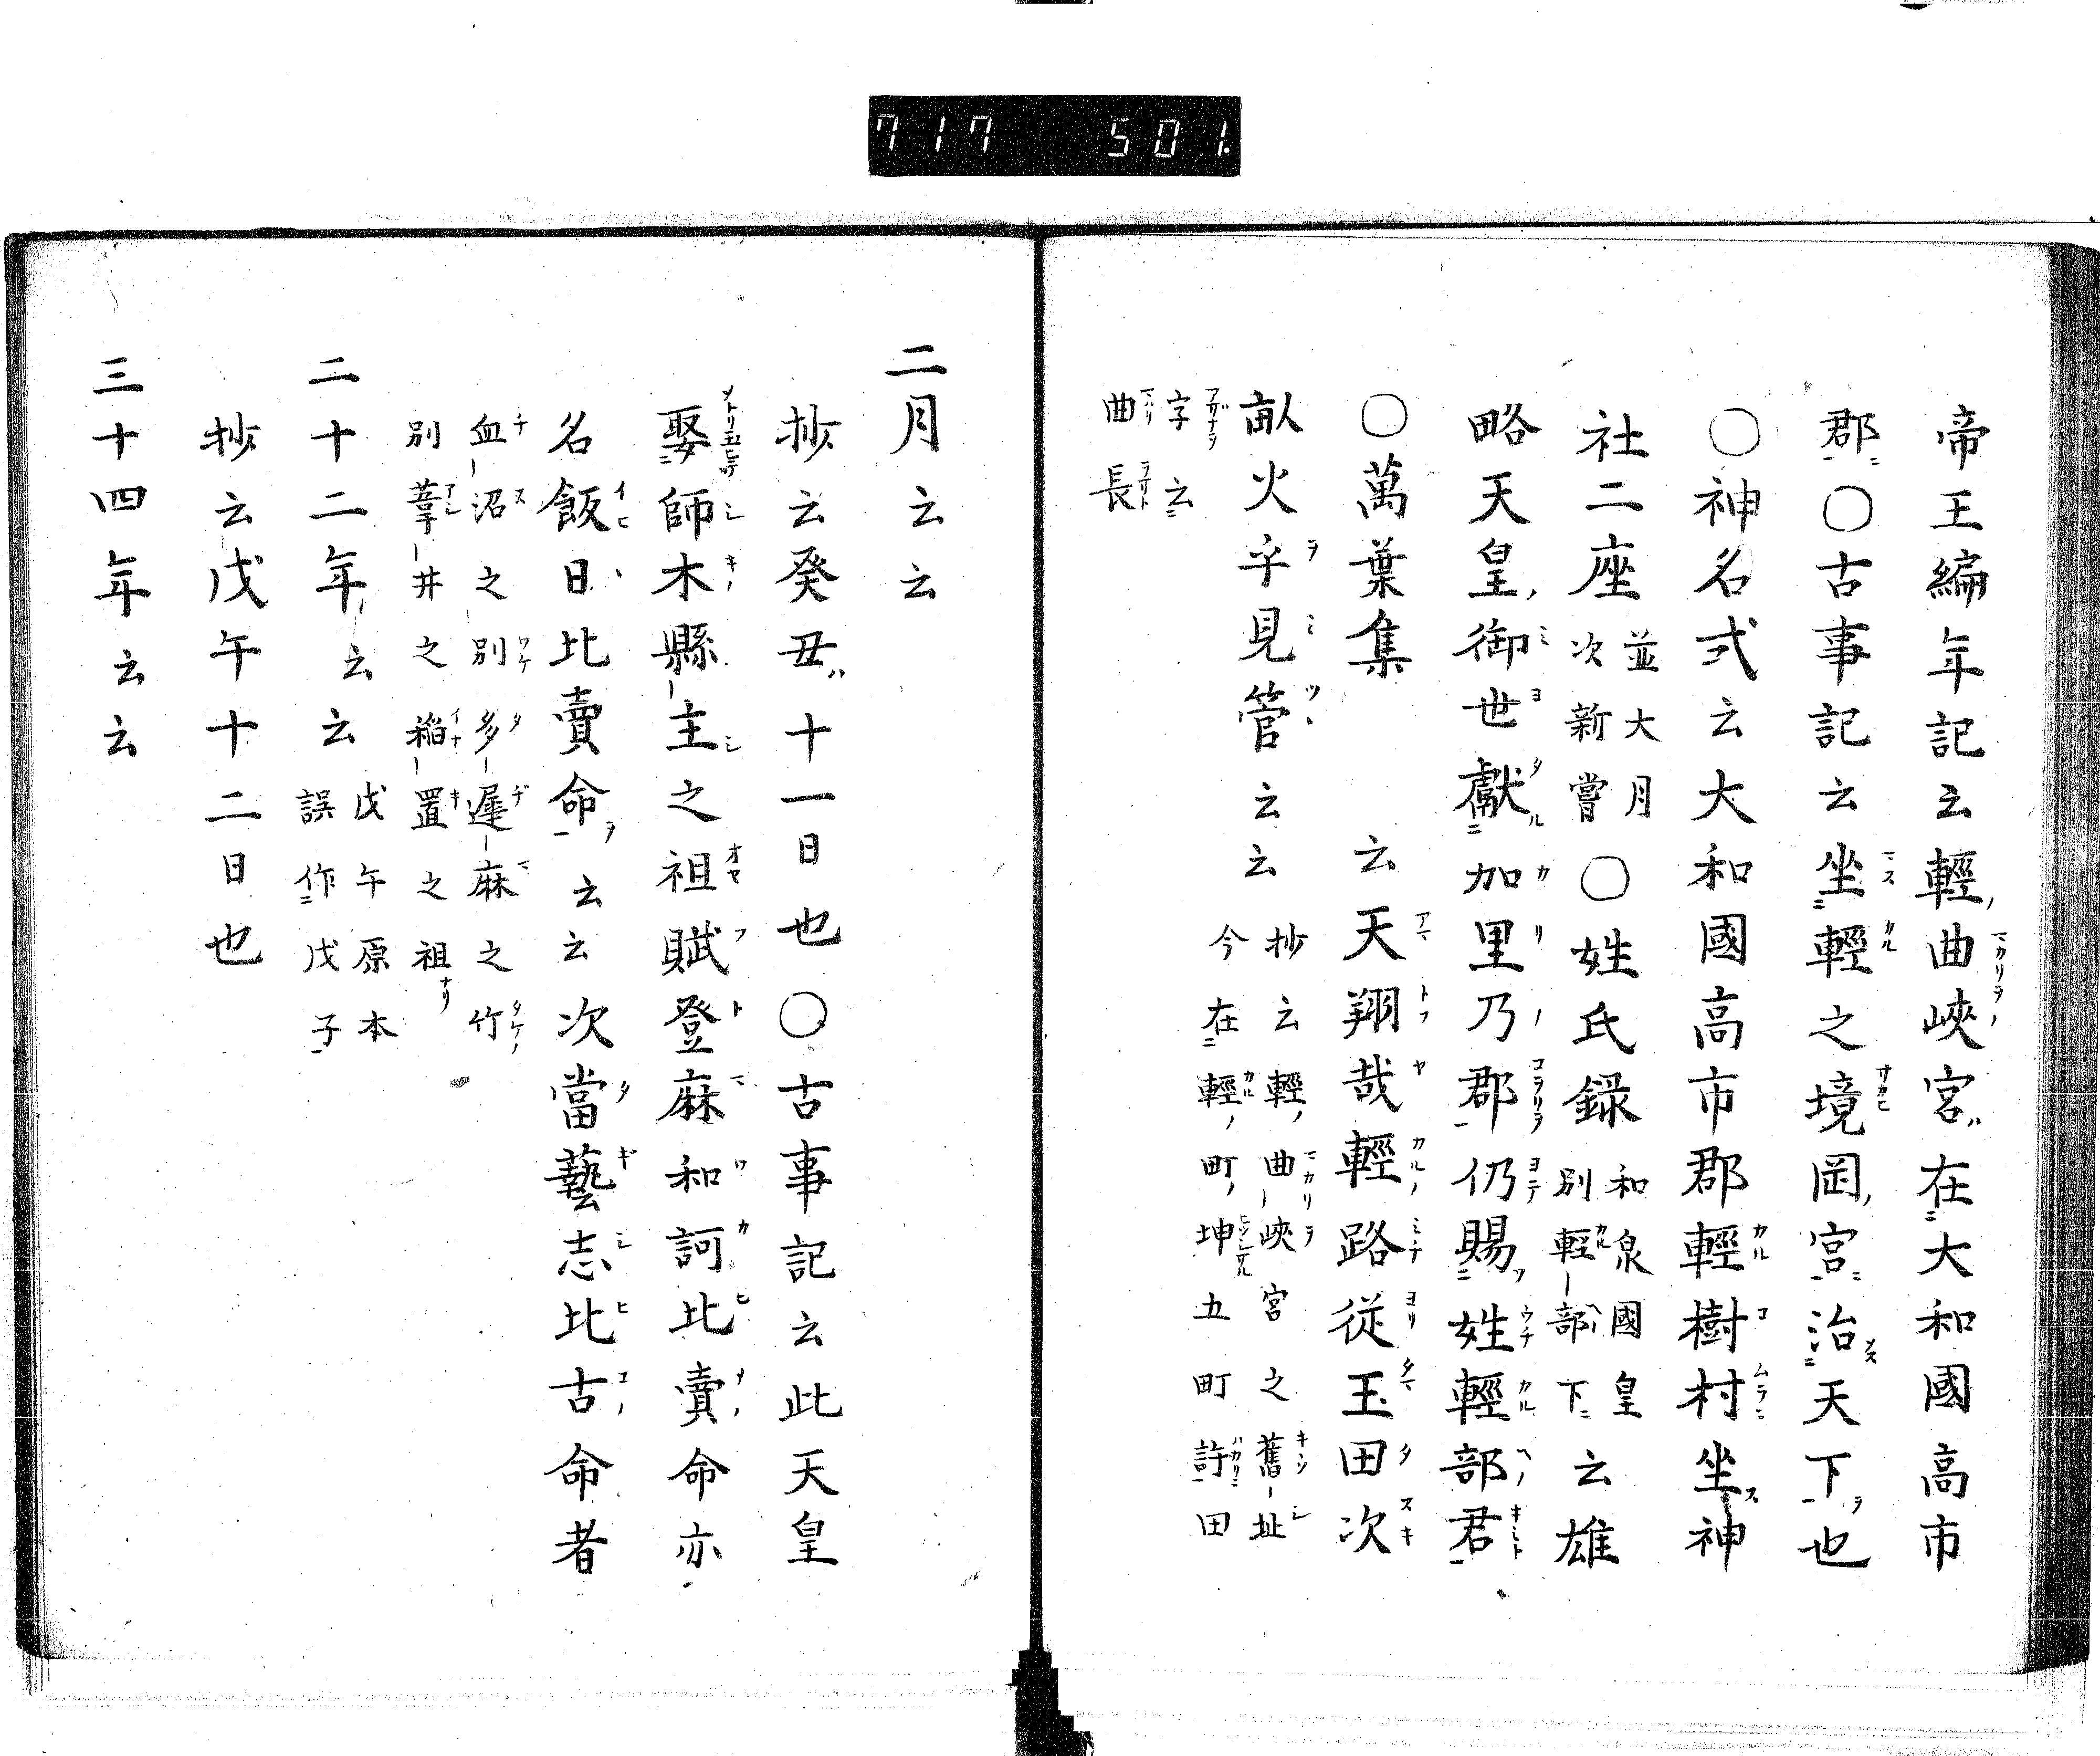 717 501.
帝王編年記云輕曲峽宮在大和國高市
郡○古事記云坐輕之境岡宮治天下也
○神名式云大和國高市郡輕樹村坐神
社二座
並大月
次新嘗
○姓氏録
和泉國皇
別輕部下
云雄
略天皇御世獻加里乃郡仍賜姓輕部君
○萬葉集 云天翔哉輕路従玉田次
畝火乎見管云云
抄云輕曲峽宮之舊址
今在輕町坤五町許田
字云
曲長
二月云云
抄云癸丑十一日也○古事記云此天皇
娶師木縣主之祖賦登麻和訶比賣命亦
名飯日比賣命云云次當藝志比古命者
血沼之別多遲麻之竹
別葦井之稲置之祖ナリ
二十二年云云
戊午原本
誤作戊子
抄云戊午十二日也
三十四年云云